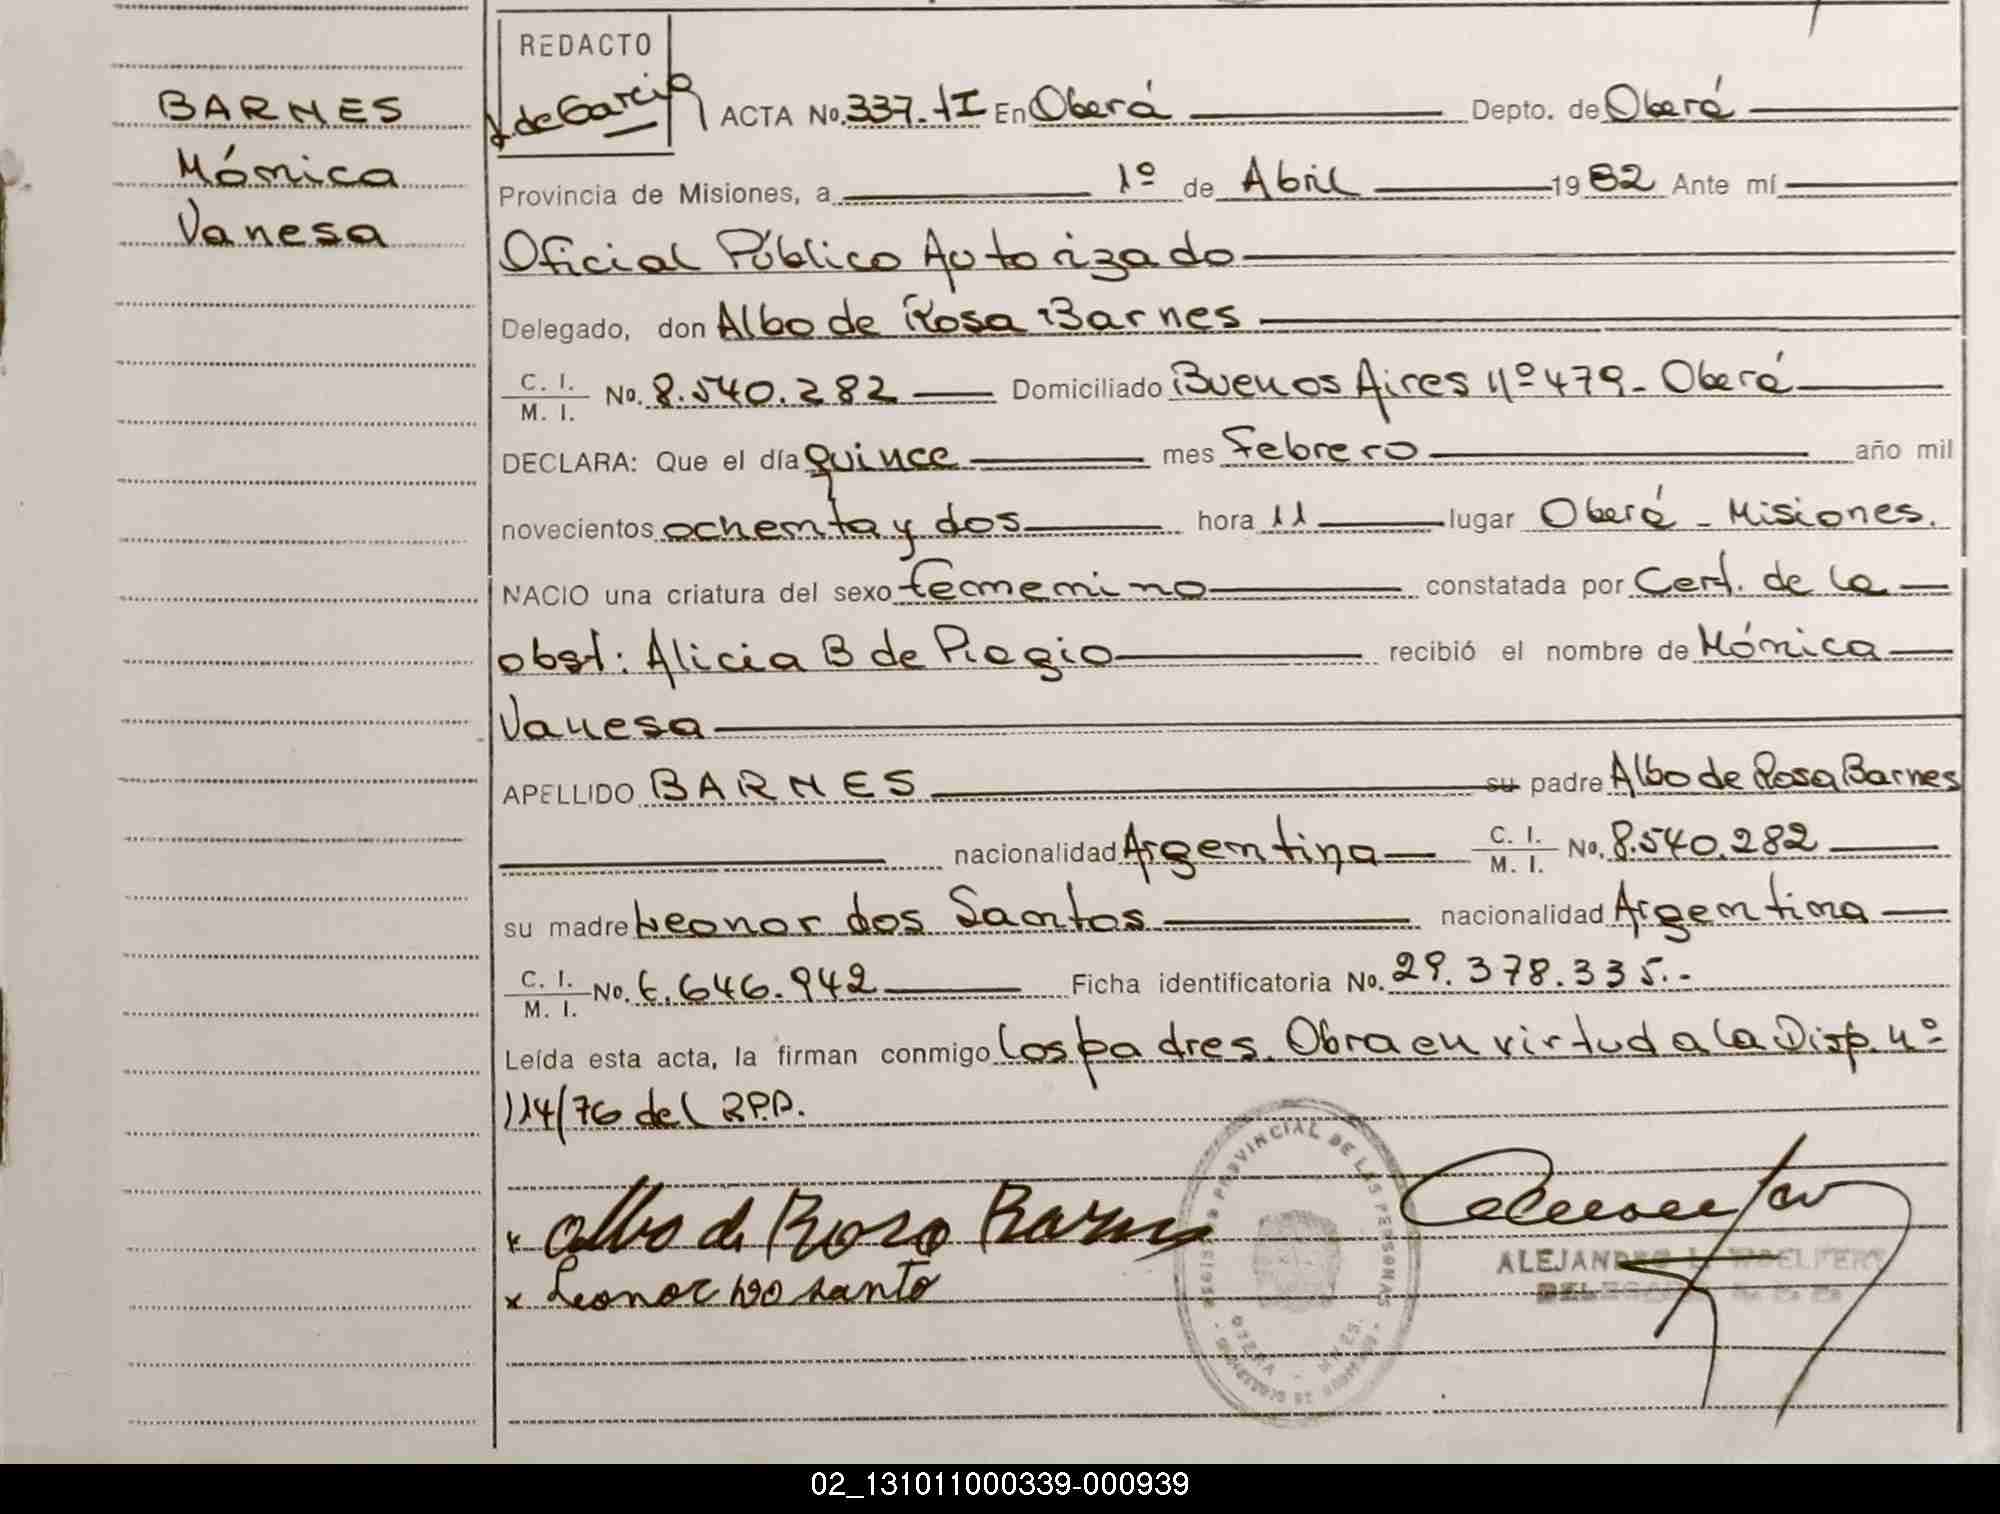 BARNES
Mónica
Vanesa
REDACTO
de Garcia
ACTA No. 337. tI En Oberá Depto. de Oberá
Provincia de Misiones, a 1º de Abril 1982 Ante mí
Oficial Público Autorizado
Delegado, don Albo de Rosa Barnes
C. I. M. I. No. 8.540.282 Domiciliado Buenos Aires nº 479 - Oberá
DECLARA: Que el día quince mes Febrero año mil
novecientos ochenta y dos hora 11 lugar Oberá - Misiones.
NACIO una criatura del sexo femenino constatada por Cert. de la
obst: Alicia B de Piogio recibió el nombre de Mónica
Vanesa
APELLIDO BARNES su padre Albo de Rosa Barnes
nacionalidad Argentina C. I. M. I. No. 8.540.282
su madre Leonor dos Santos nacionalidad Argentina
C. I. M. I. No. 6.646.942 Ficha identificatoria No. 29.378.335.-
Leída esta acta, la firman conmigo los padres. Obra en virtud a la Disp. nº
114/76 del R.P.P.
x Albo de Rosa Barnes
x Leonor do santo
REGISTRO PROVINCIAL DE LAS PERSONAS
OBERA - MNES.
ALEJANDRO L. WOELFERT
DELEGADO
02_131011000339-000939